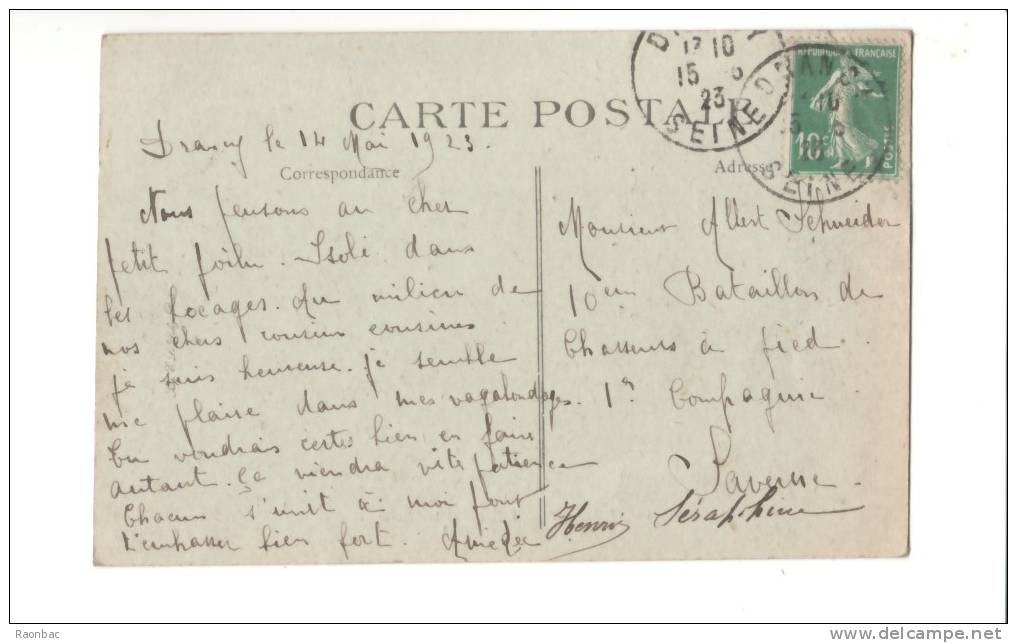 CARTE POSTALE
Drancy le 14 Mai 1923.
Correspondance
Adresse
Nous pensons au cher
petit poilu. Isolé dans
les bocages. Au milieu de
nos chers cousins cousines
je suis heureuse. Je semble
me plaire dans mes vagabondages.
Tu voudrais certes bien en faire
autant. Ça viendra vite patience
Chacun s'unit à moi pour
t'embrasser bien fort. Amédée
Henri Séraphine
Monsieur Albert Schneider
10em Bataillon de
Chasseurs à pied
1re Compagnie
Saverne
REPUBLIQUE FRANÇAISE
10c
POSTES
10
15
23
SEINE
DRANCY
SEINE
Raonbac
delcampe.net